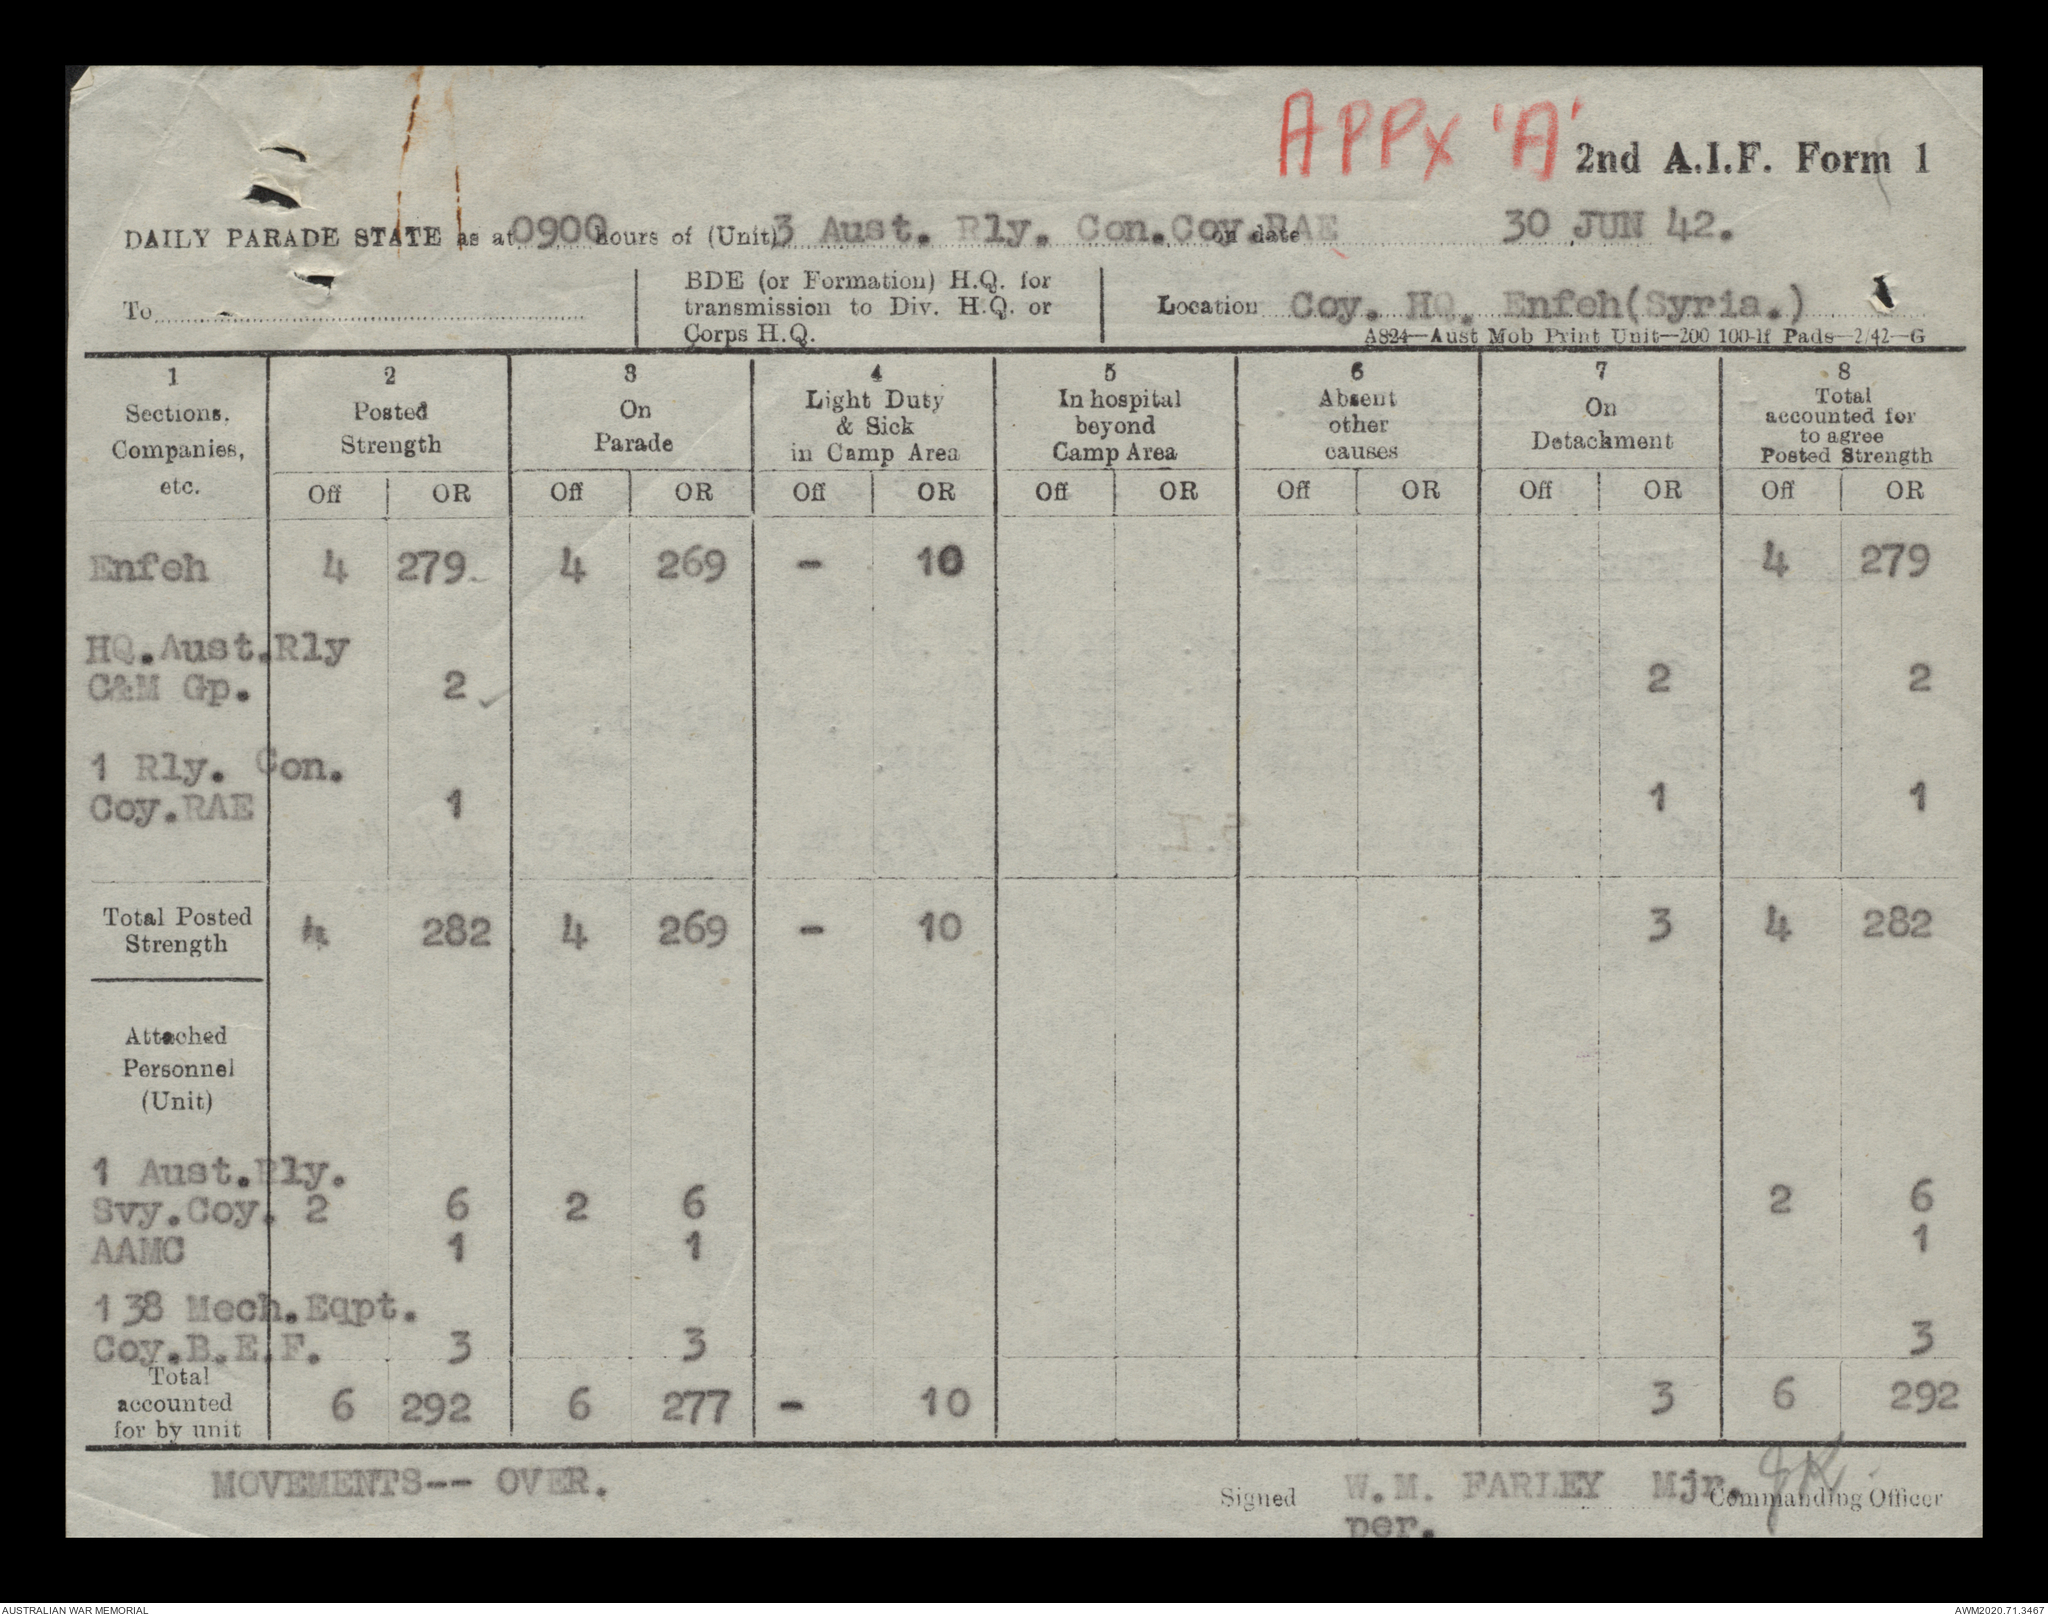 APPx 'A'
2nd A.I.F. Form 1
DAILY PARADE STATE as at 0900 hours of (Unit) 3 Aust. Rly. Con.Coy.RAE on date 30 JUN 42.
To
BDE (or Formation) H.Q. for
transmission to Div. H.Q. or
Corps H.Q.
Location Coy. HQ. Enfeh(Syria.)
A824—Aust Mob Print Unit—200 100-lf Pads—2/42—G
1 2 3 4 5 6 7 8
Sections, Companies, etc.
Posted Strength
On Parade
Light Duty & Sick in Camp Area
In hospital beyond Camp Area
Absent other causes
On Detachment
Total accounted for to agree Posted Strength
Off OR Off OR Off OR Off OR Off OR Off OR Off OR
Enfeh 4 279 4 269 - 10 4 279
HQ.Aust.Rly
C&M Gp. 2 2 2
1 Rly. Con.
Coy.RAE 1 1 1
Total Posted
Strength 4 282 4 269 - 10 3 4 282
Attached
Personnel
(Unit)
1 Aust.Rly.
Svy.Coy. 2 6 2 6 2 6
AAMC 1 1 1
138 Mech.Eqpt.
Coy.B.E.F. 3 3 3
Total
accounted
for by unit 6 292 6 277 - 10 3 6 292
MOVEMENTS-- OVER.
Signed W.M. FARLEY Mjr. Commanding Officer
per.
AUSTRALIAN WAR MEMORIAL
AWM2020.71.3467